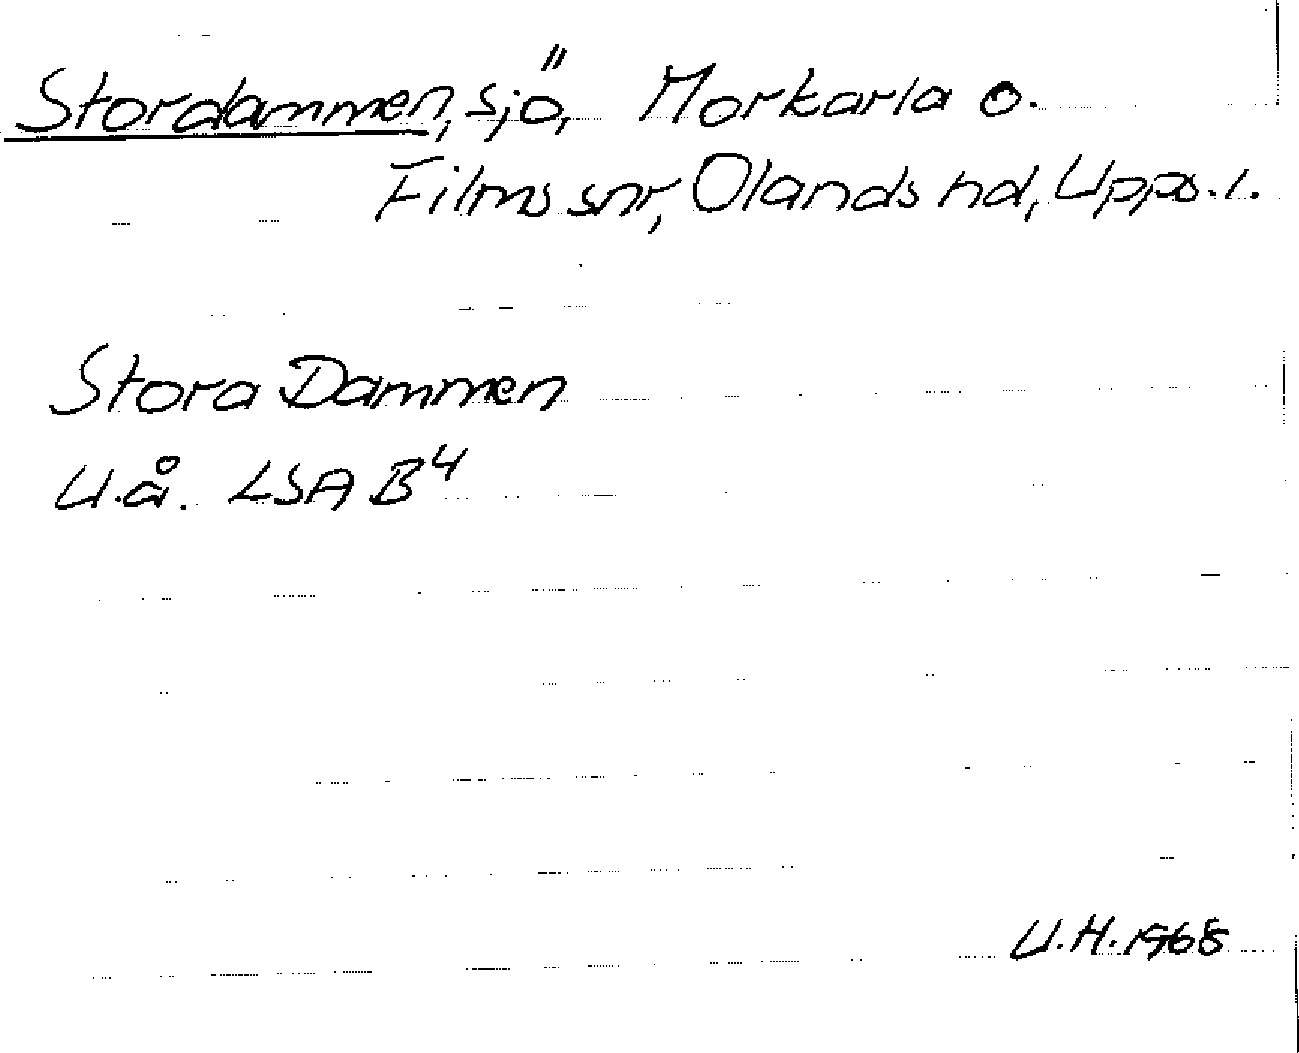 Stordammen, sjö, Morkarla o.
Films snr, Olands hd, Upps. l.
Stora Dammen
U.å. LSA B4
U.H. 1968